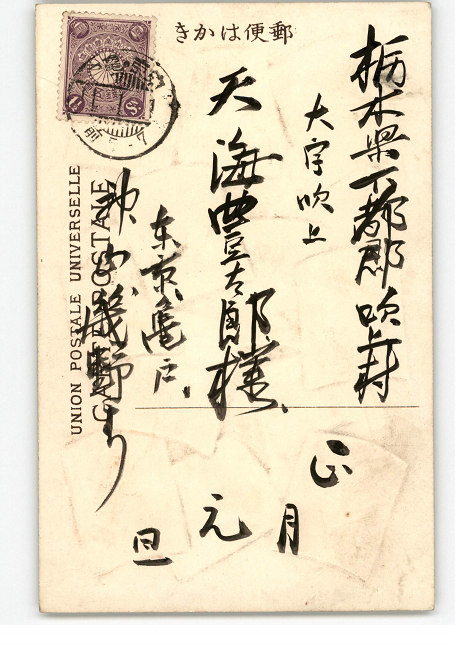 郵便はかき
栃木県下都郡吹上村
大字吹上
天海豊太郎様
東京亀戸
秋山磯野より
正月
元
旦
UNION POSTALE UNIVERSELLE
CARTE POSTALE